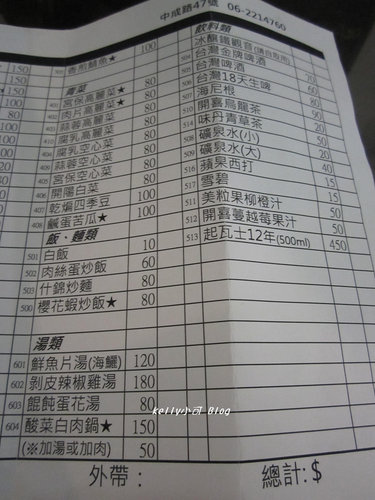 中成路47號 06-2214766
★ 150
150
150
香煎鯖魚★ 100
青菜
401 宮保高麗菜★ 80
402 肉片高麗菜★ 80
403 蒜蓉高麗菜 80
410 腐乳高麗菜 80
腐乳空心菜 80
蒜蓉空心菜 80
405 宮保空心菜 80
406 開陽白菜 100
407 乾煸四季豆 100
408 鹹蛋苦瓜★ 100
飯、麵類
501 白飯 10
502 肉絲蛋炒飯 60
503 什錦炒麵 80
500 櫻花蝦炒飯★ 80
湯類
601 鮮魚片湯(海鱺) 120
602 剝皮辣椒雞湯 180
603 餛飩蛋花湯 80
604 酸菜白肉鍋★ 150
(※加湯或加肉) 50
飲料類
冰釀鐵觀音
504 台灣金牌啤酒
505 台灣啤酒
506 台灣18天生啤
507 海尼根
510 開喜烏龍茶
514 味丹青草茶
508 礦泉水(小)
509 礦泉水(大) 20
516 蘋果西打 40
517 雪碧 15
511 美粒果柳橙汁 15
512 開喜蔓越莓果汁 50
513 起瓦士12年(500ml) 450
外帶： 總計：$
kelly小可 Blog